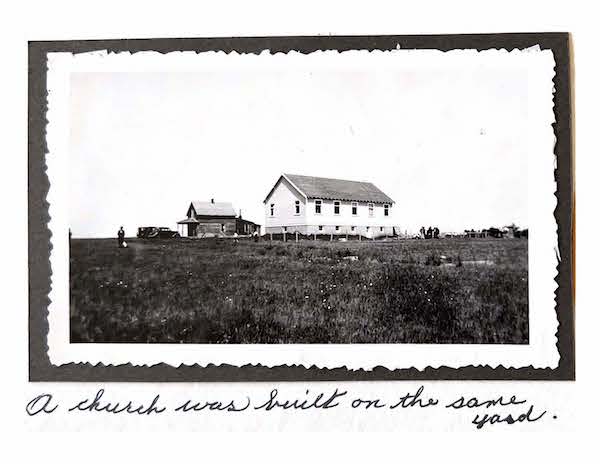 A church was built on the same
yard.